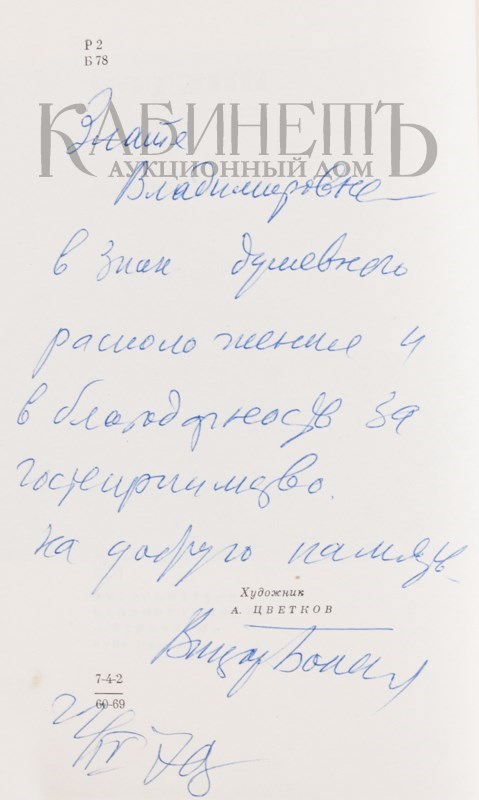 Р 2
Б 78
КАБИНЕТЪ
АУКЦИОННЫЙ ДОМ
Владимировне
в знак душевного
расположения и
в благодарность за
гостеприимство.
На добрую память
Художник
А. ЦВЕТКОВ
Виктор Боков
7-4-2
60-69